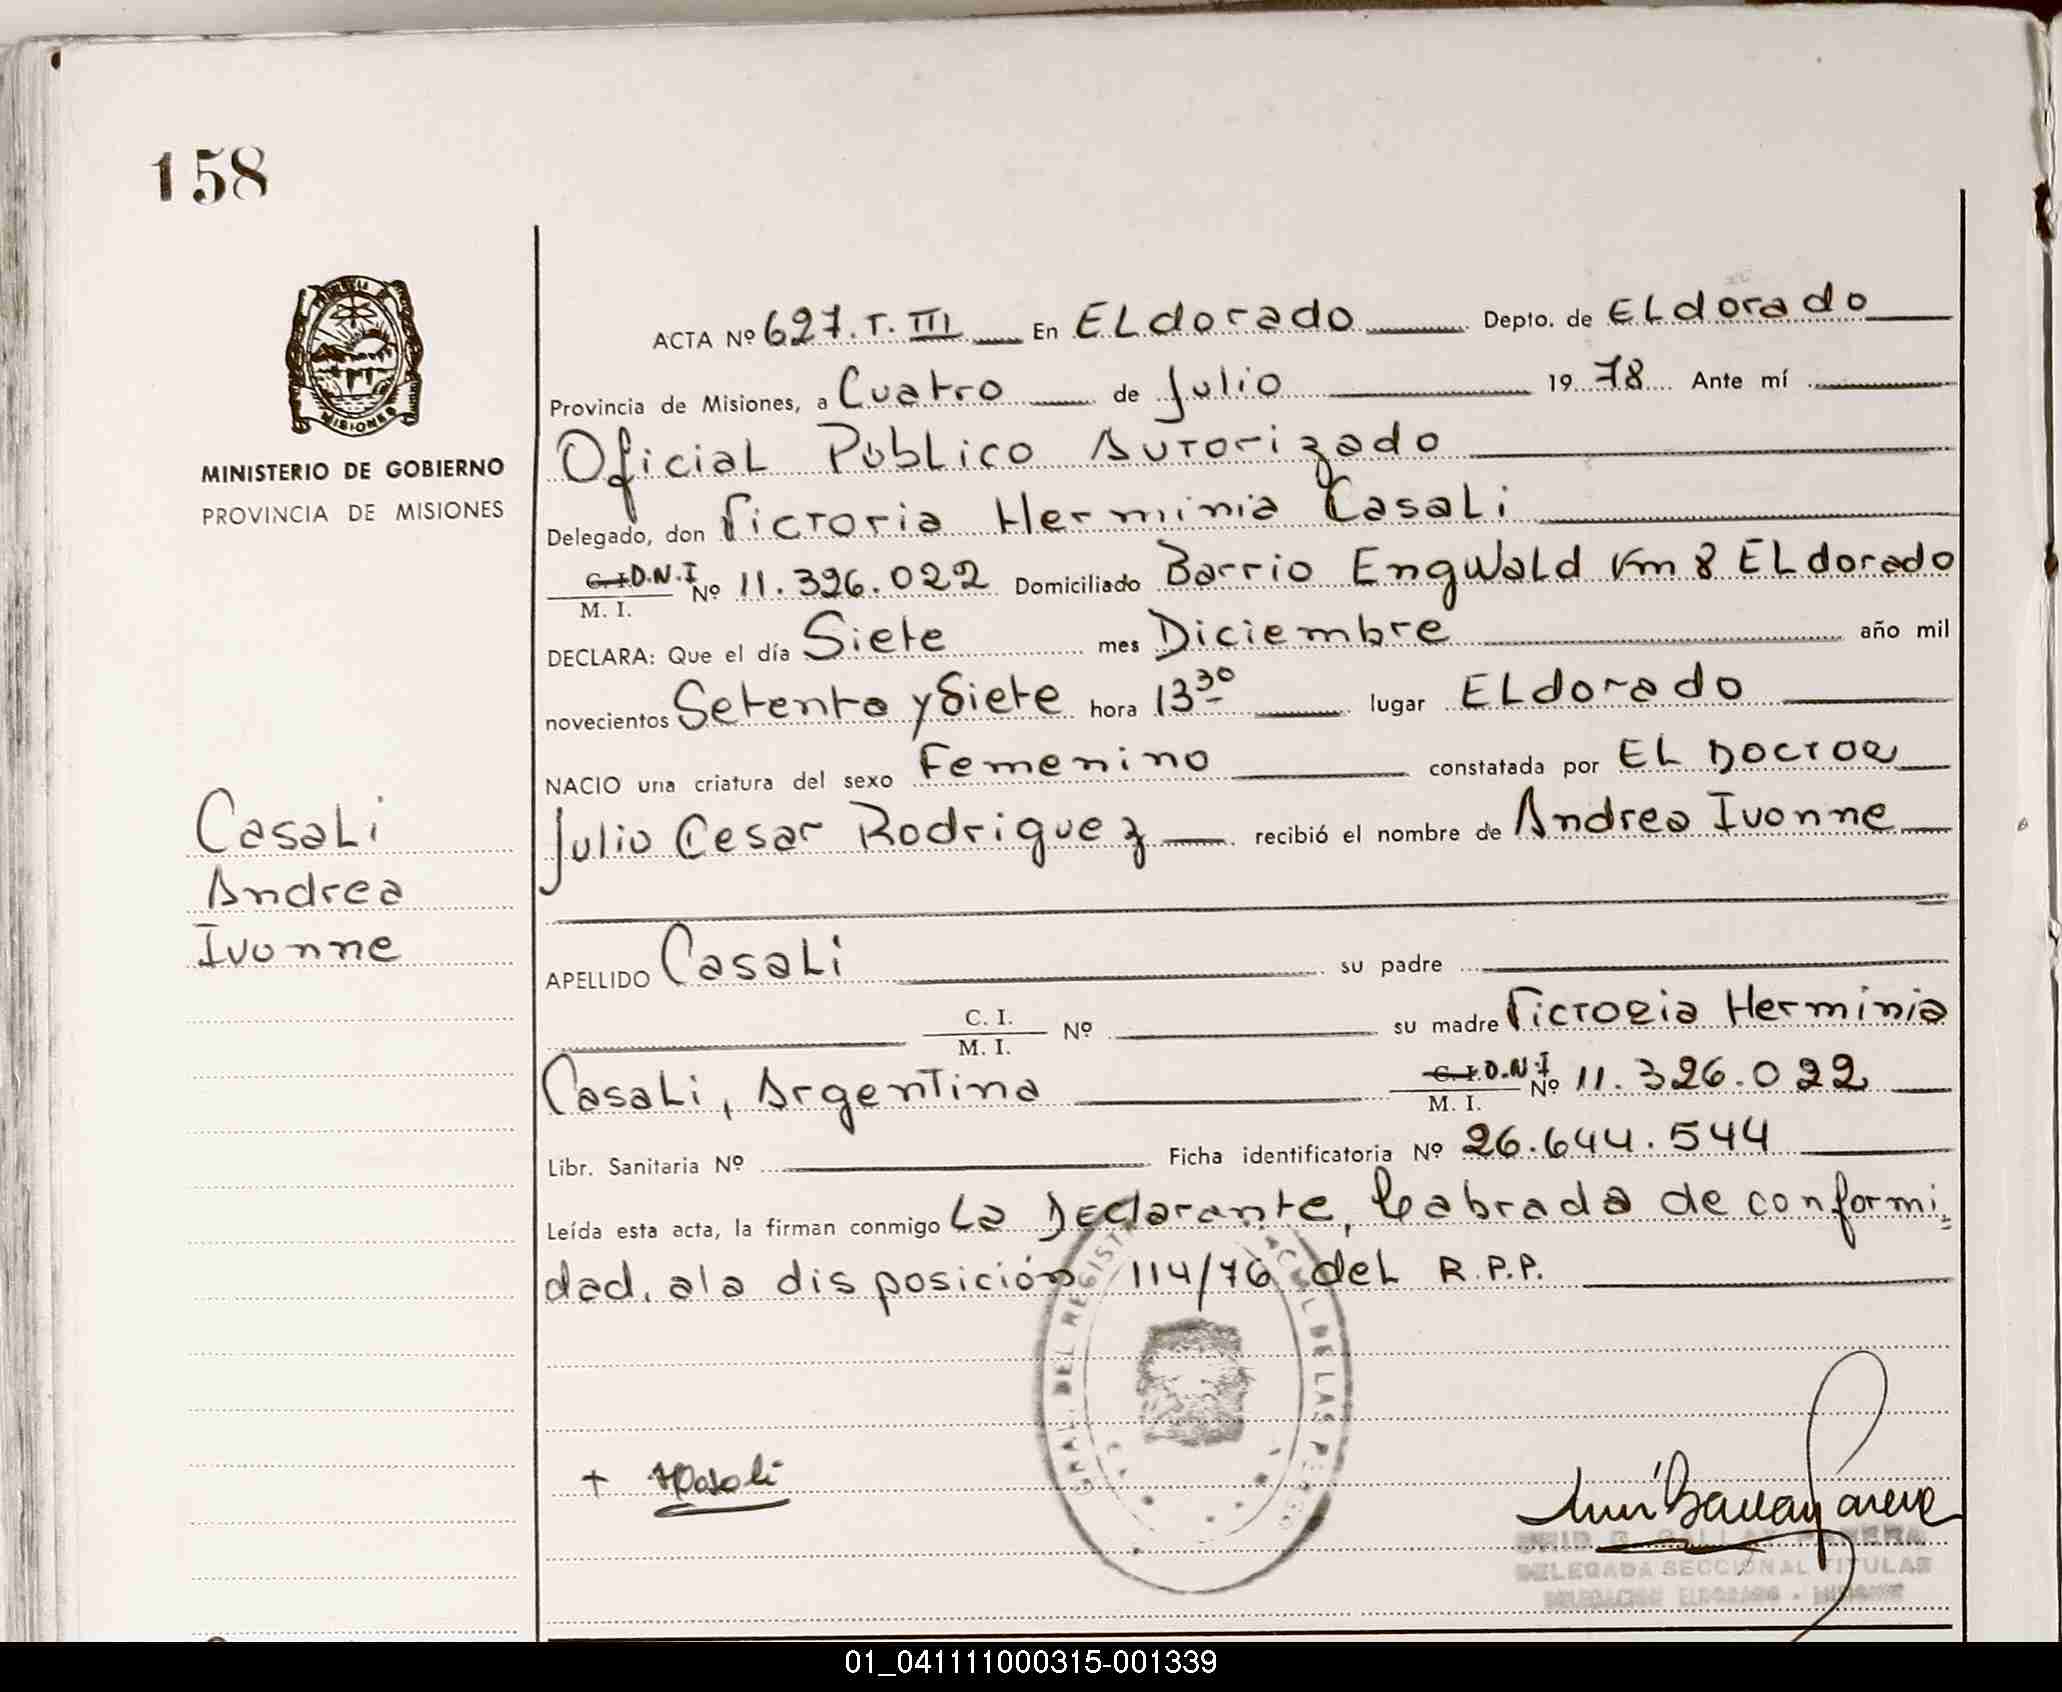 158
MISIONES
MINISTERIO DE GOBIERNO
PROVINCIA DE MISIONES
Casali
Andrea
Ivonne
ACTA Nº 627.T.III En ELdorado Depto. de ELdorado
Provincia de Misiones, a Cuatro de Julio 1978 Ante mí
Oficial Publico Autorizado
Delegado, don Victoria Herminia Casali
C.I. D.N.I / M. I. Nº 11.326.022 Domiciliado Barrio Engwald Km 8 ELdorado
DECLARA: Que el día Siete mes Diciembre año mil
novecientos Setenta y Siete hora 13 30 lugar ELdorado
NACIO una criatura del sexo Femenino constatada por EL DOCTOR
Julio Cesar Rodriguez recibió el nombre de Andrea Ivonne
APELLIDO Casali su padre
C. I. / M. I. Nº su madre Victoria Herminia
Casali, Argentina C.I. D.N.I / M. I. Nº 11.326.022
Libr. Sanitaria Nº Ficha identificatoria Nº 26.644.544
Leída esta acta, la firman conmigo La Declarante, Labrada de conformi
dad. a la disposición 114/76 del R.P.P.
GRAL. DEL REGIST DE LAS PE
+ HCasali
G. GALLAY PARERA
DELEGADA SECCIONAL TITULAR
DELEGACION ELDORADO - MISIONES
01_041111000315-001339